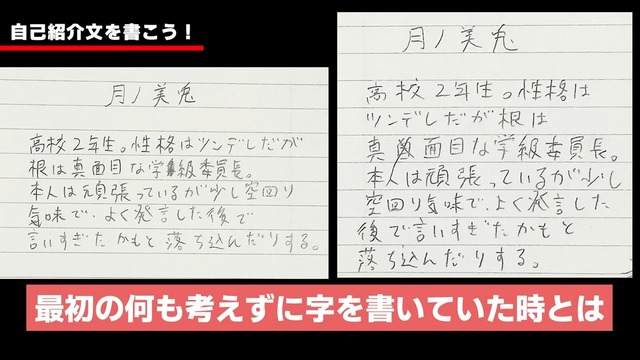 自己紹介文を書こう！
月ノ美兎
高校2年生。性格はツンデレだが
根は真面目な学級委員長。
本人は頑張っているが少し空回り
気味で、よく発言した後で
言いすぎたかもと落ち込んだりする。
月ノ美兎
高校2年生。性格は
ツンデレだが根は
真面目な学級委員長。
本人は頑張っているが少し
空回り気味で、よく発言した
後で言いすぎたかもと
落ち込んだりする。
最初の何も考えずに字を書いていた時とは